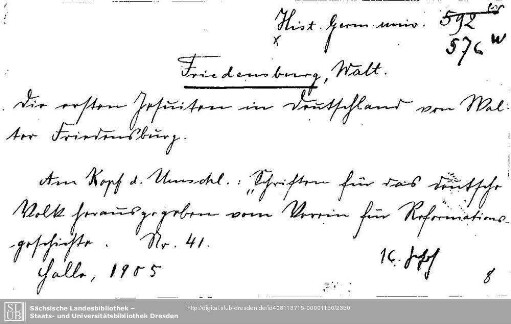 Hist. Germ. univ. 592
576 w
Friedensburg, Walt.
Die ersten Jesuiten in Deutschland von Wal-
ter Friedensburg.
Am Kopf d. Umschl.: „Schriften für das deutsche
Volk herausgegeben vom Verein für Reformations-
geschichte. Nr. 41.
Halle, 1905
16.
8
SLUB
Sächsische Landesbibliothek –
Staats- und Universitätsbibliothek Dresden